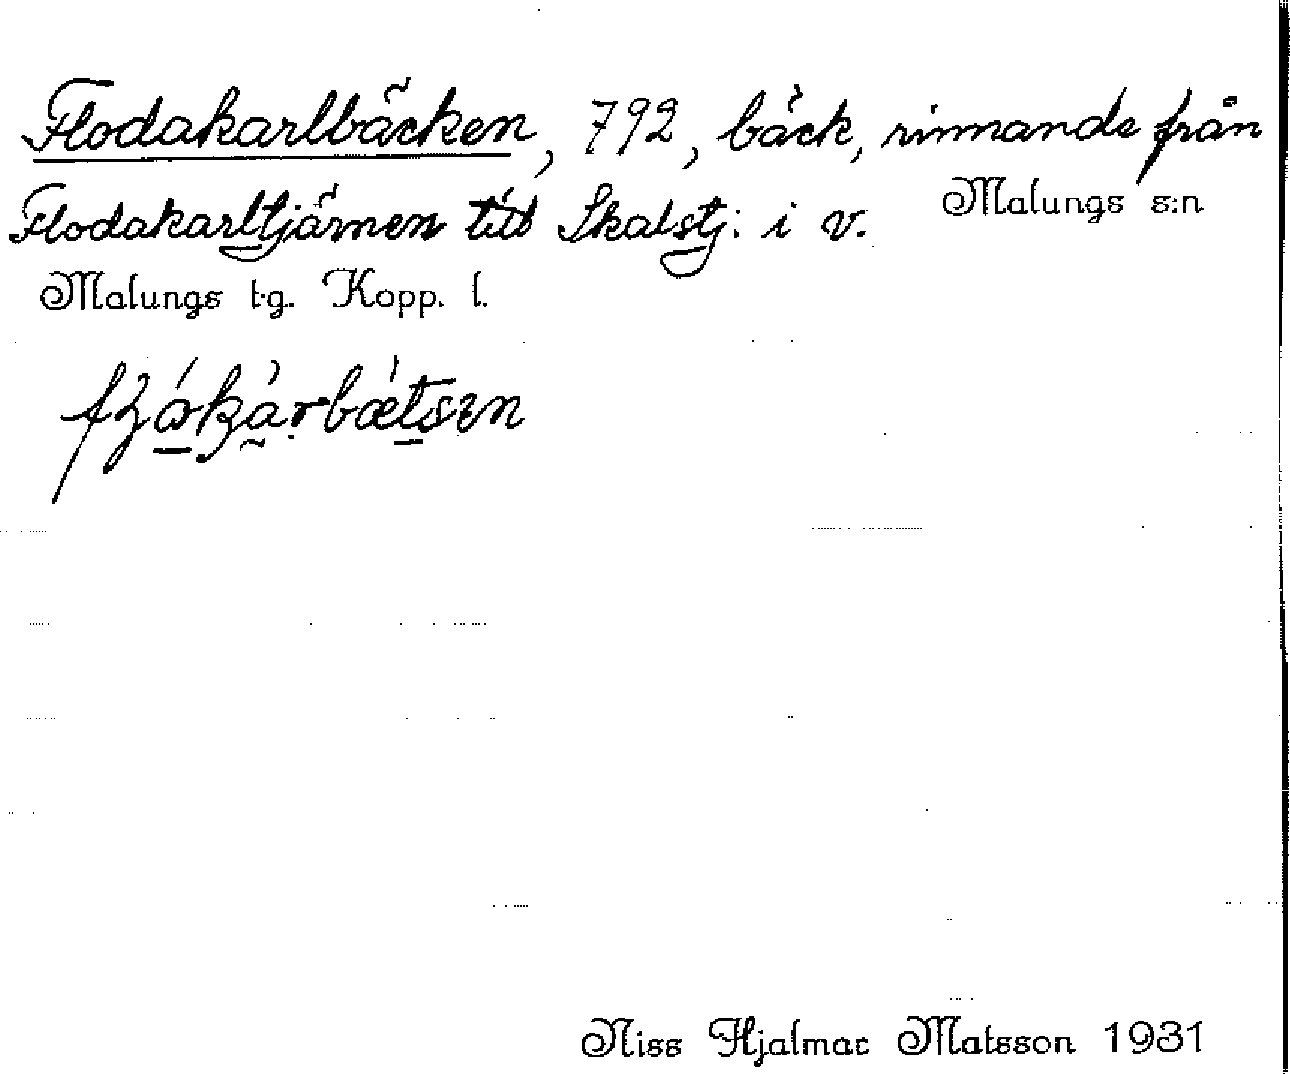 Flodakarlbäcken, 792, bäck, rinnande från
Flodakarltjärnen till Skalstj: i v.
Malungs s:n
Malungs t.g. Kopp. l.
Niss Hjalmar Matsson 1931